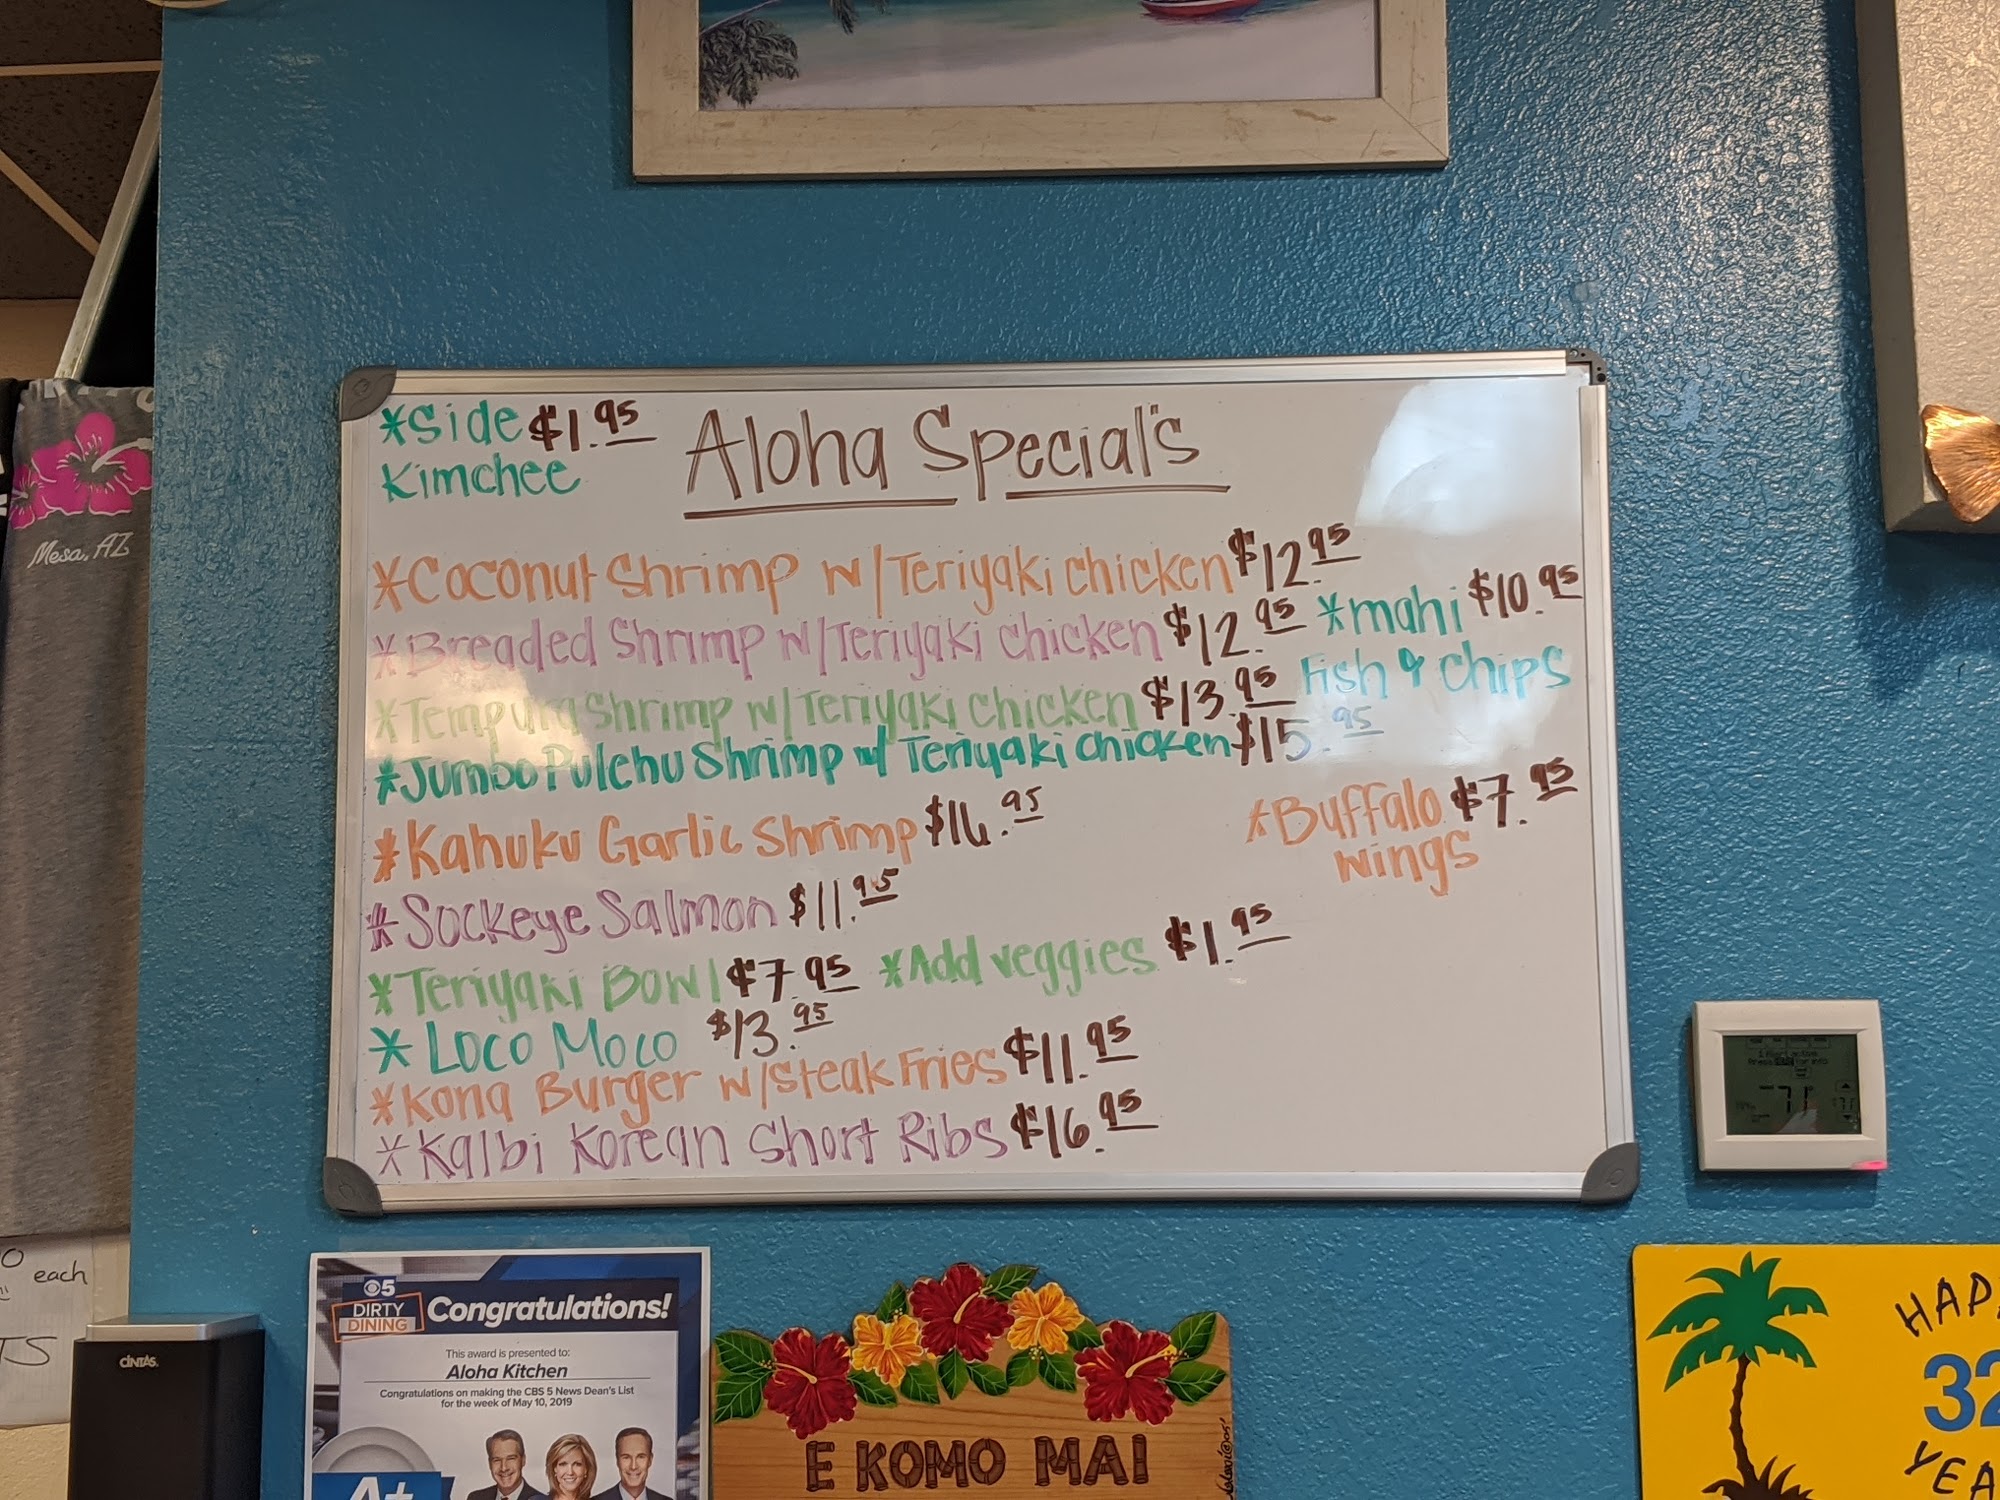 *Side $1.95
Kimchee
Aloha Special's
*Coconut Shrimp w/Teriyaki chicken $12.95
*Breaded Shrimp w/Teriyaki chicken $12.95
*mahi $10.95
Fish & Chips
*Tempura Shrimp w/Teriyaki chicken $13.95
*Jumbo Pulehu Shrimp w/ Teriyaki chicken $15.95
*Kahuku Garlic Shrimp $16.95
*Buffalo $7.95
Wings
*Sockeye Salmon $11.95
*Teriyaki Bowl $7.95 *Add veggies $1.95
*Loco Moco $13.95
*Kona Burger w/steak Fries $11.95
*Kalbi Korean Short Ribs $16.95
Mesa, AZ
each
CINTAS
5
DIRTY
DINING
Congratulations!
This award is presented to:
Aloha Kitchen
Congratulations on making the CBS 5 News Dean's List
for the week of May 10, 2019
A+
E KOMO MAI
71
HAP
32
YEA